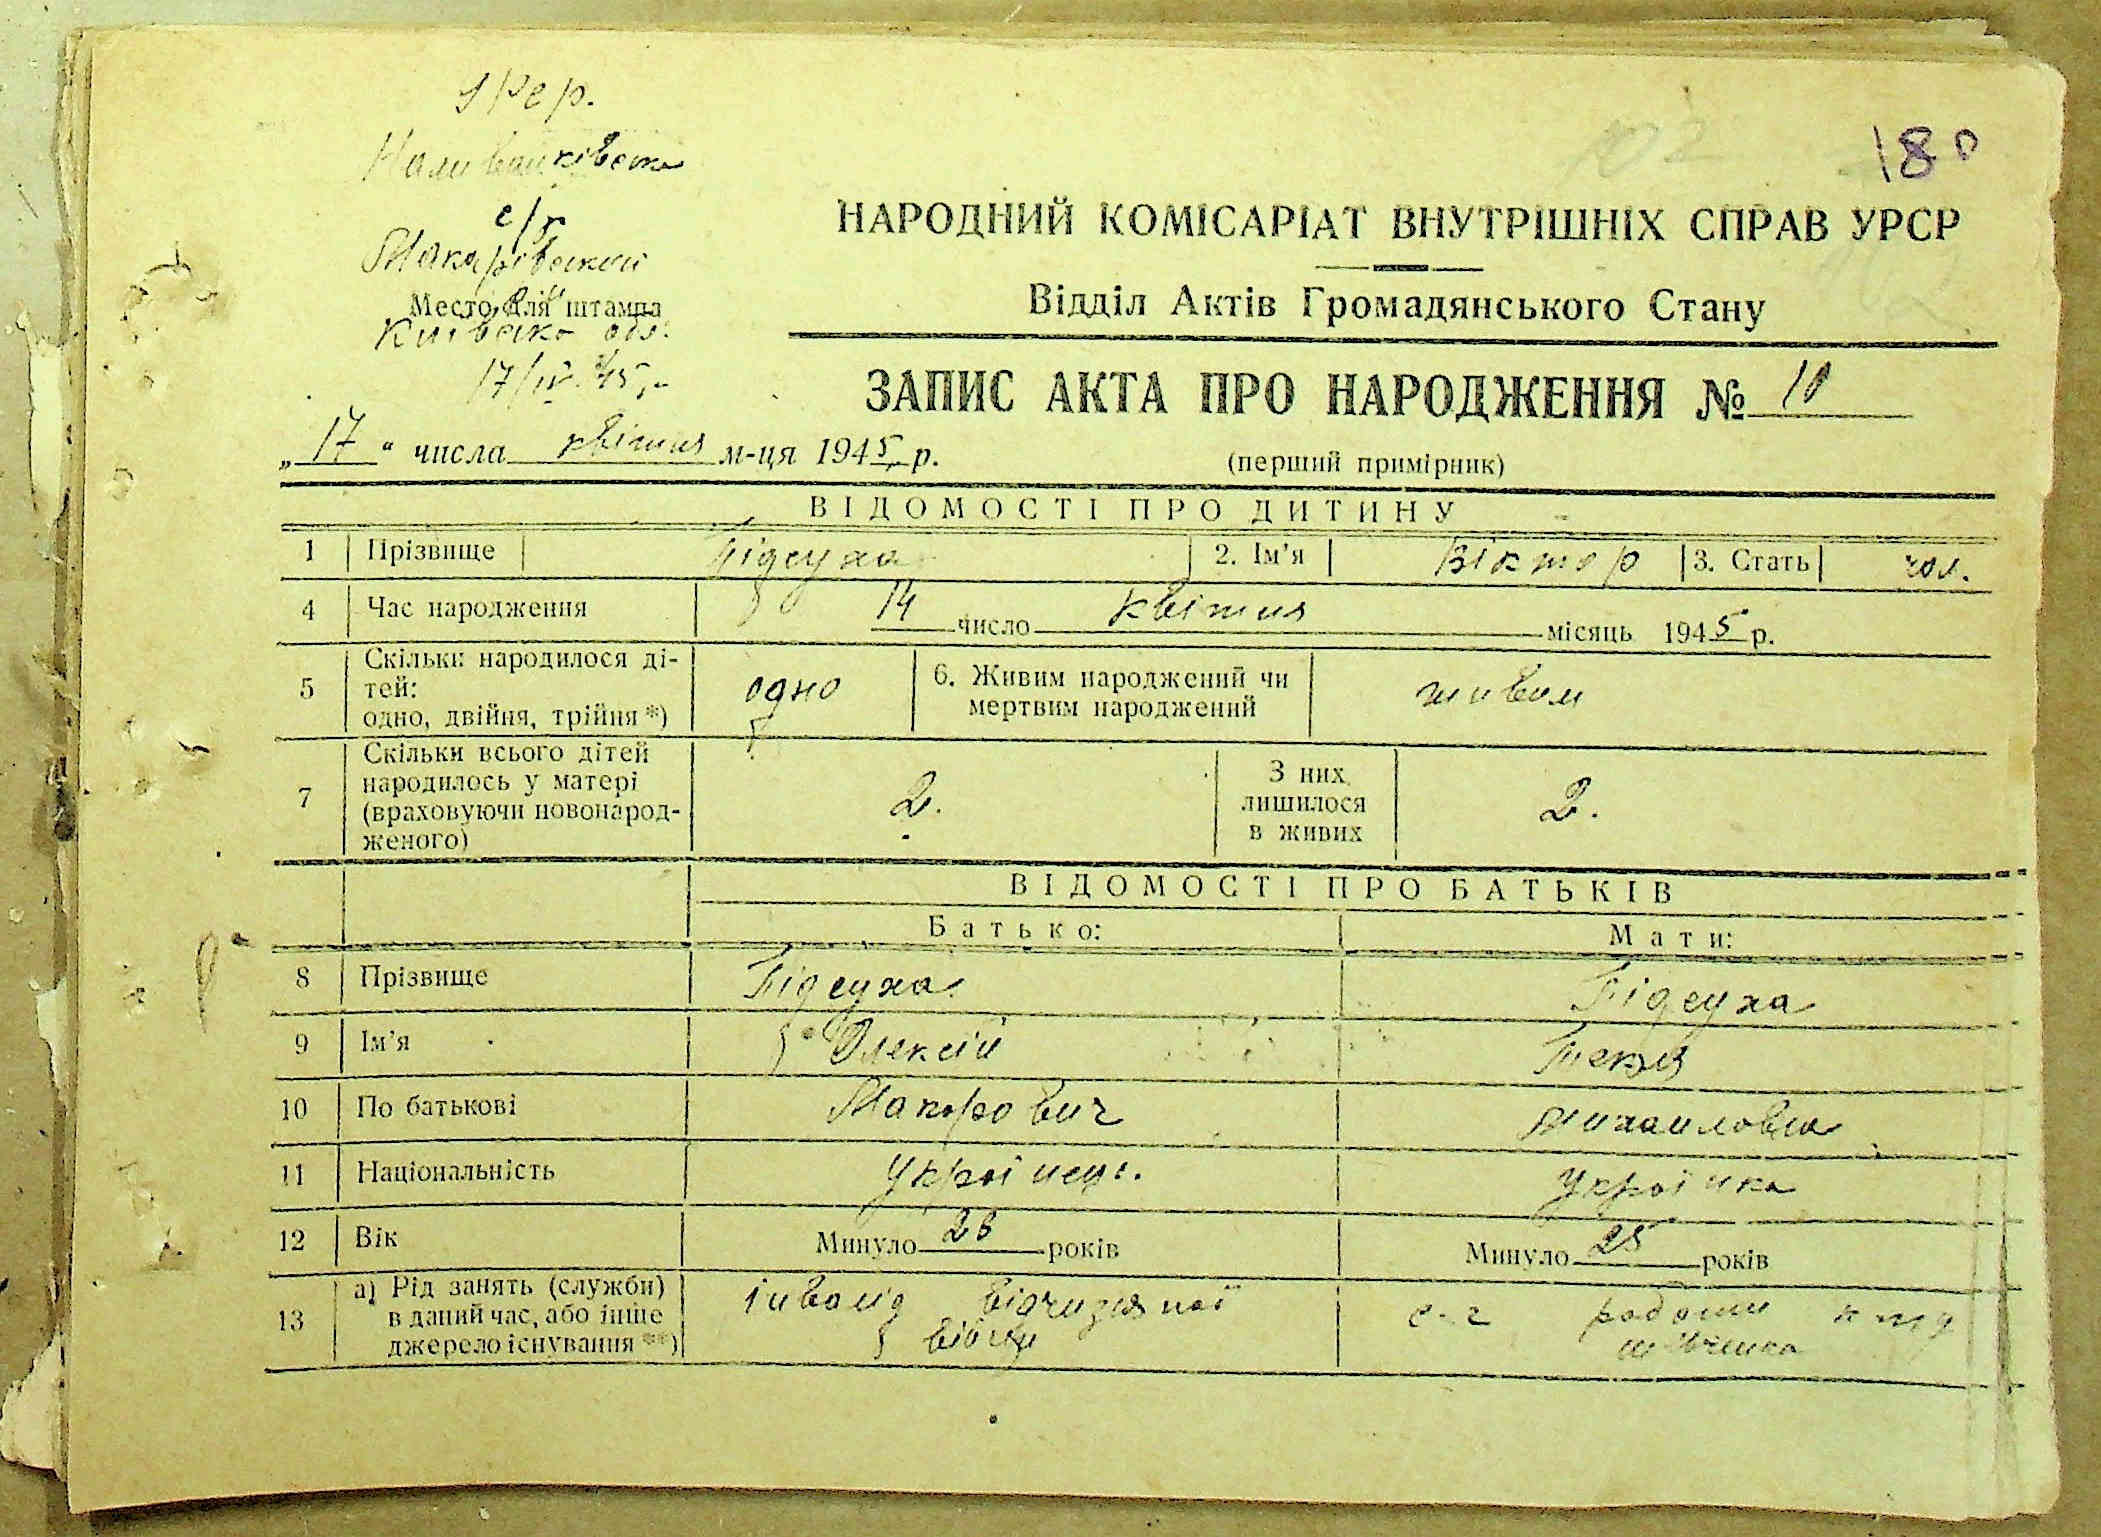 УРСР.
Наливайківська
с/р
Макарівський
Место для штампа
р-н
Київсько обл.
17/IV 45.
102
180
НАРОДНИЙ КОМІСАРІАТ ВНУТРІШНІХ СПРАВ УРСР
Відділ Актів Громадянського Стану
ЗАПИС АКТА ПРО НАРОДЖЕННЯ № 10
„17“ числа квітня м-ця 1945 р.
(перший примірник)
ВІДОМОСТІ ПРО ДИТИНУ
1 Прізвище Підсуха 2. Ім'я Віктор 3. Стать чол.
4 Час народження 14 число квітня місяць 1945 р.
5 Скільки народилося ді-
тей:
одно, двійня, трійня *) одно 6. Живим народжений чи
мертвим народжений живим
7 Скільки всього дітей
народилось у матері
(враховуючи новонарод-
женого) 2. З них
лишилося
в живих 2.
ВІДОМОСТІ ПРО БАТЬКІВ
Батько: Мати:
8 Прізвище Підсуха Підсуха
9 Ім'я Олексій Текля
10 По батькові Макарович Михайловна
11 Національність Українець. Українка
12 Вік Минуло 28 років Минуло 25 років
13 а) Рід занять (служби)
в даний час, або інше
джерело існування **) інвалід вітчизняної
війни
с-г